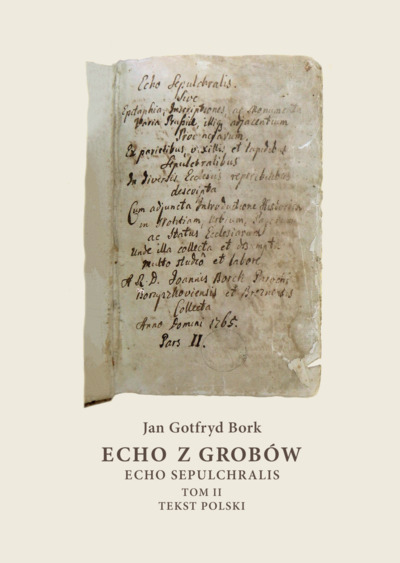 Echo Sepulchralis.
Sive
Epitaphia, Inscriptiones, ac Monumenta
Varia Prussiæ, illiq adjacentium
Provinciarum.
Ex parietibus, vexillis, et lapidibus
Sepulchralibus
In diversis Ecclesiis reperibilibus
descripta
Cum adjuncta Introductione Historica
in Notitiam, Urbium, Pagorum
ac Status Ecclesiarum
Unde illa collecta et
multo studio et labore
A R. D. Joannis Borck Parochi
et
Collecta
Anno Domini 1765.
Pars II.
Jan Gotfryd Bork
ECHO Z GROBÓW
ECHO SEPULCHRALIS
TOM II
TEKST POLSKI